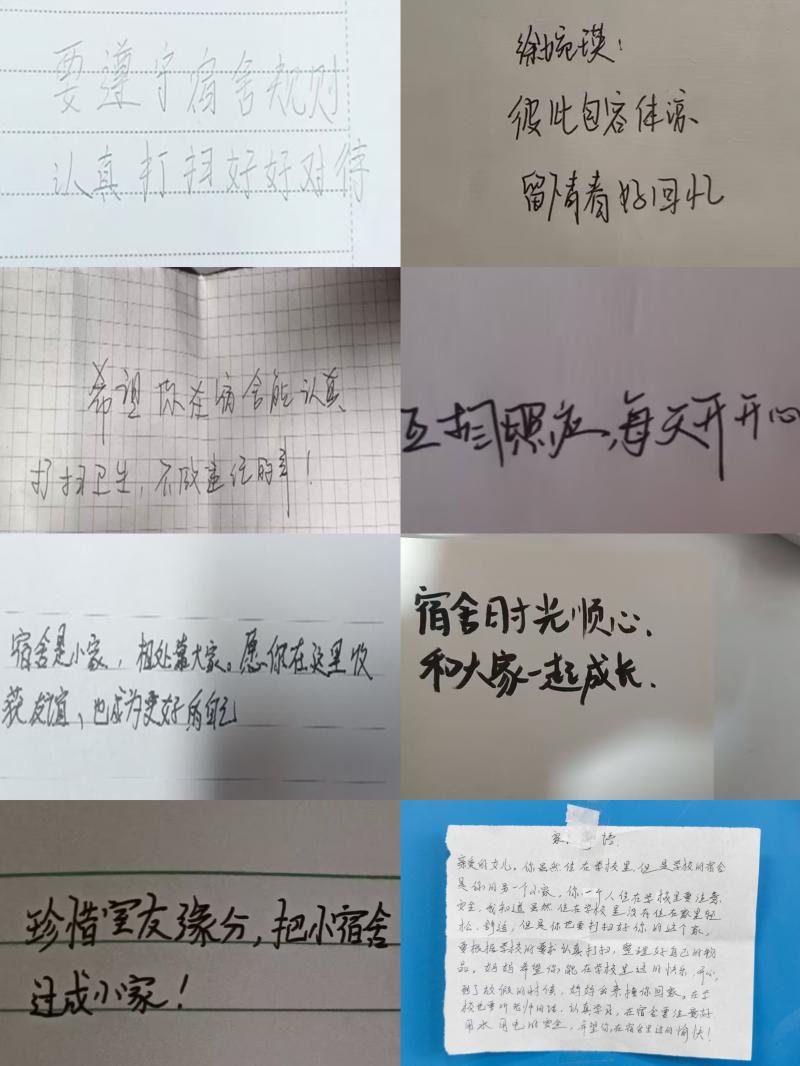 要遵守宿舍规则
认真打扫好好对待
徐婉瑛:
彼此包容体谅
留下青春好回忆
希望你在宿舍能认真
打扫卫生,不做违纪的事!
互相照应,每天开开心心
宿舍是小家,相处靠大家。愿你在这里收
获友谊,也成为更好的自己
宿舍时光顺心,
和大家一起成长.
珍惜室友缘分,把小宿舍
过成小家!
家 语
亲爱的女儿。你虽然住在学校里,但是学校的宿舍
是你的另一个小家,你一个人住在学校里要注意
安全,我知道虽然住在学校里没有住在家里轻
松、舒适,但是你也要打扫好你的这个家,
要根据学校的要求认真打扫,整理好自己的物
品。妈妈希望你能在学校里过的快乐、开心,
到了放假的时候,妈妈会来接你回家,在学
校也要听老师的话、认真学习,在宿舍要注意好
用水用电的安全,希望你在宿舍里过的愉快!